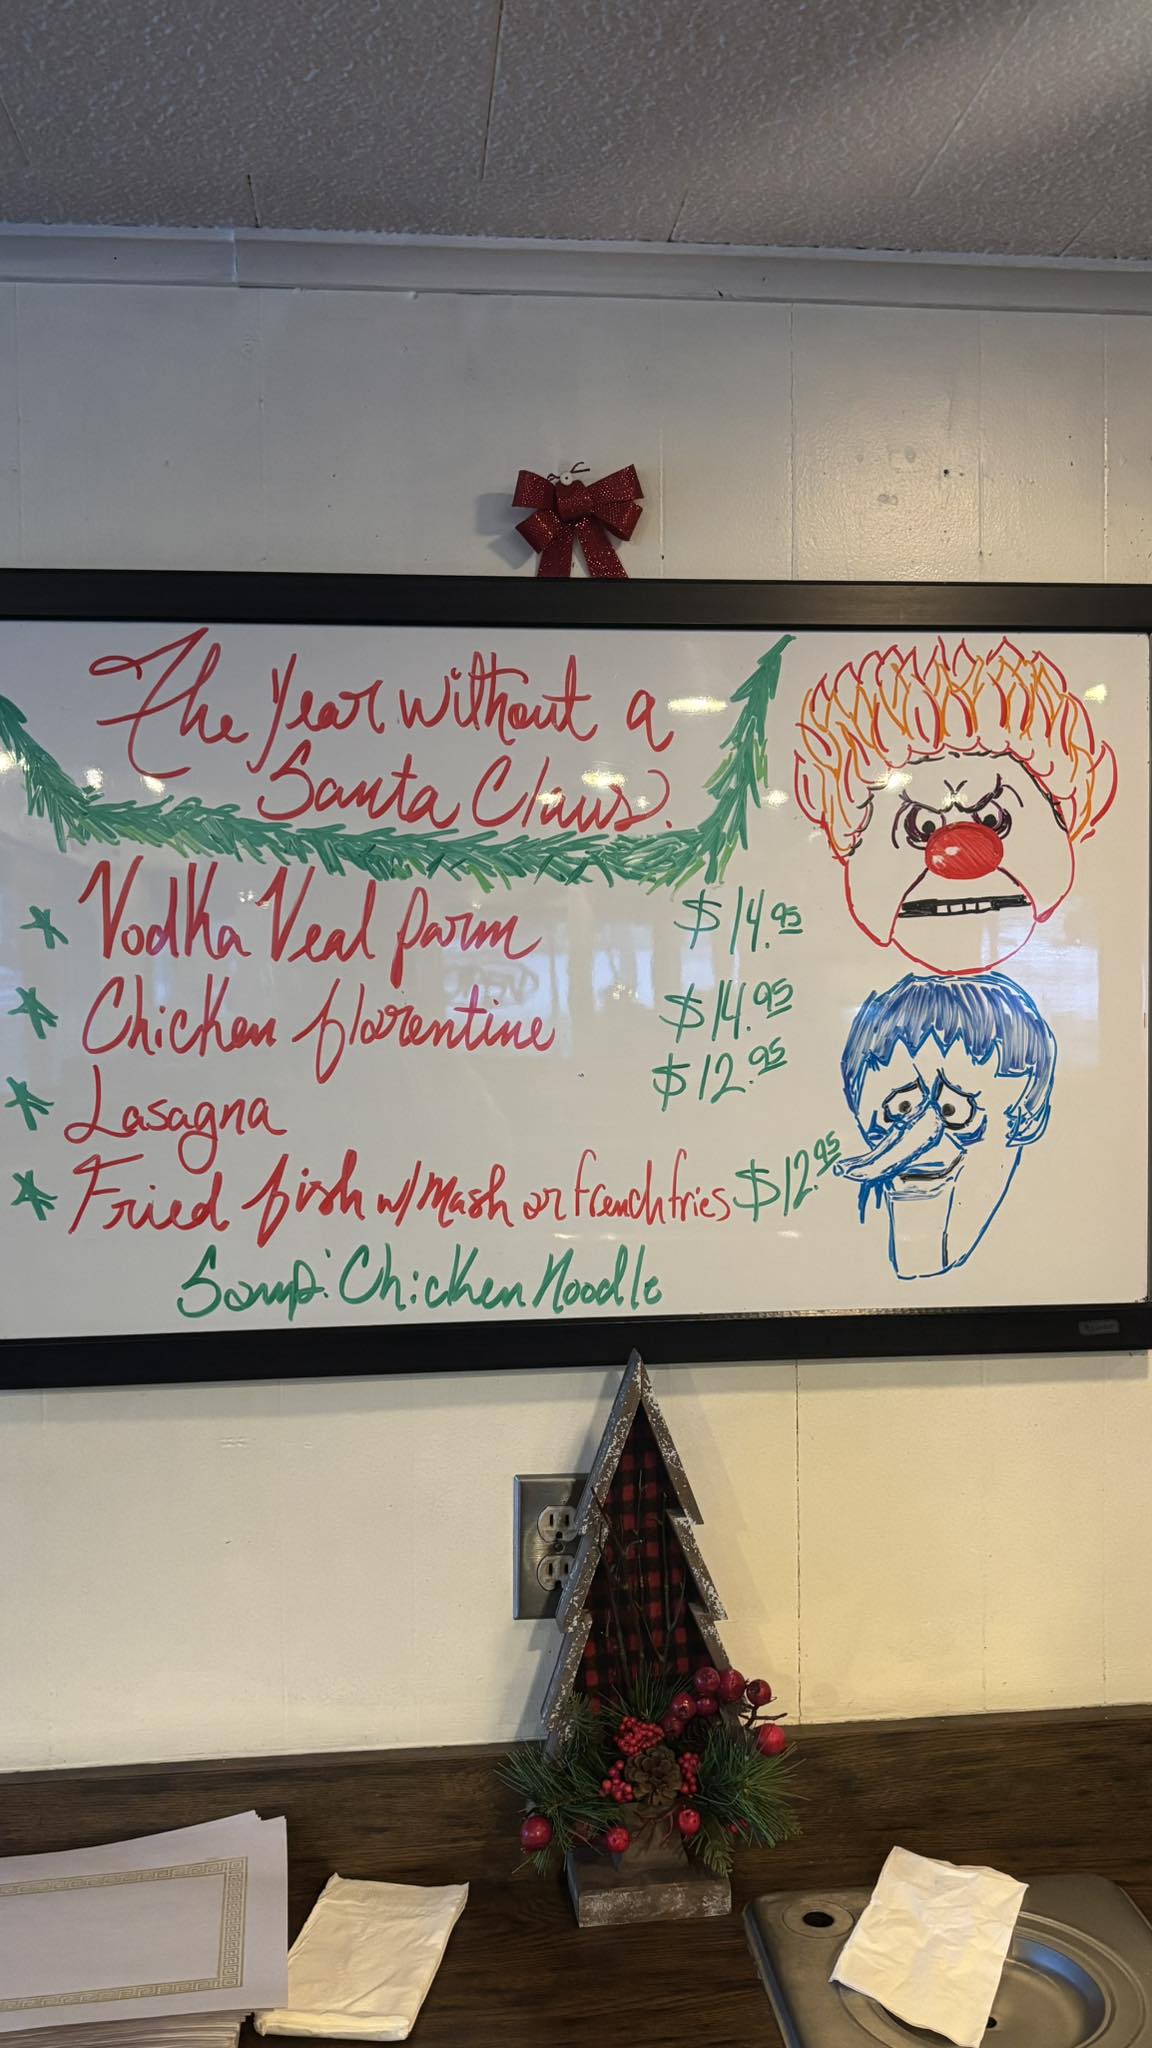 The Year without a
Santa Claus.
* Vodka Veal parm $14.95
* Chicken florentine $14.95
* Lasagna $12.95
* Fried fish w/ Mash or french fries $12.95
Soup: Chicken Noodle